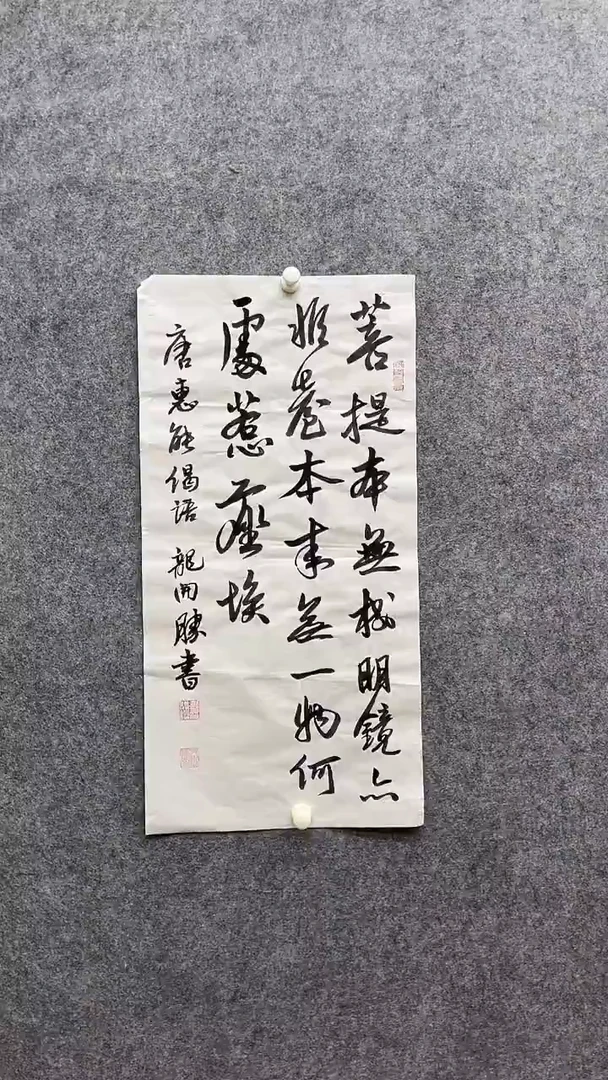 菩提本無樹明鏡亦
非臺本来無一物何
處惹塵埃
唐惠能偈語 龍開勝書